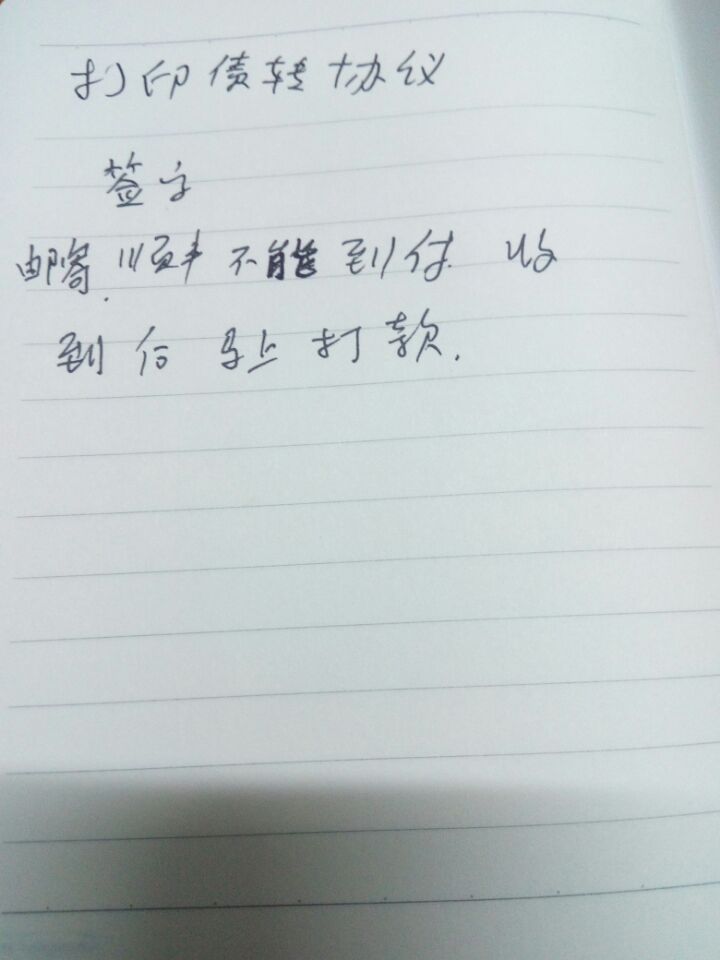 打印债转协议
签字
邮寄.顺丰不能到付.收
到后马上打款.